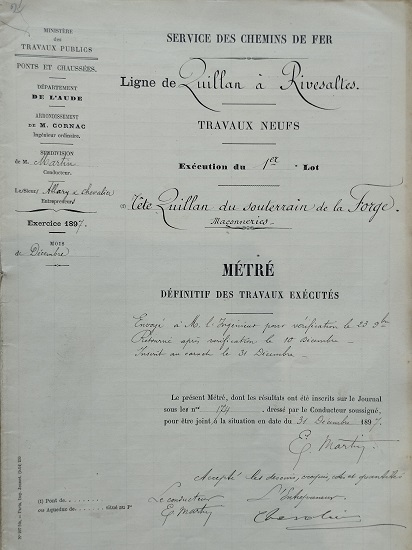 MINISTÈRE
des
TRAVAUX PUBLICS
PONTS ET CHAUSSÉES.
DÉPARTEMENT
DE L'AUDE
ARRONDISSEMENT
DE M. CORNAC
Ingénieur ordinaire.
SUBDIVISION
de M. Martin
Conducteur.
Le Sieur Allary & Chevalier
Entrepreneur
Exercice 1897.
MOIS
de Décembre
SERVICE DES CHEMINS DE FER
Ligne de Quillan à Rivesaltes.
TRAVAUX NEUFS
Exécution du 1er Lot
(1) Tête Quillan du souterrain de la Forge.
Maçonneries
MÉTRÉ
DÉFINITIF DES TRAVAUX EXÉCUTÉS
Envoyé à M. l'Ingénieur pour vérification le 23 9bre
Retourné après vérification le 10 Décembre
Inscrit au carnet le 31 Décembre
Le présent Métré, dont les résultats ont été inscrits sur le Journal
sous les nos 174, dressé par le Conducteur soussigné,
pour être joint à la situation en date du 31 Décembre 1897.
E. Martin
Accepté les dessins, croquis, cotes et quantités
Le conducteur
L'Entrepreneur
E Martin
(1) Pont de
ou Aqueduc de situé au Pt